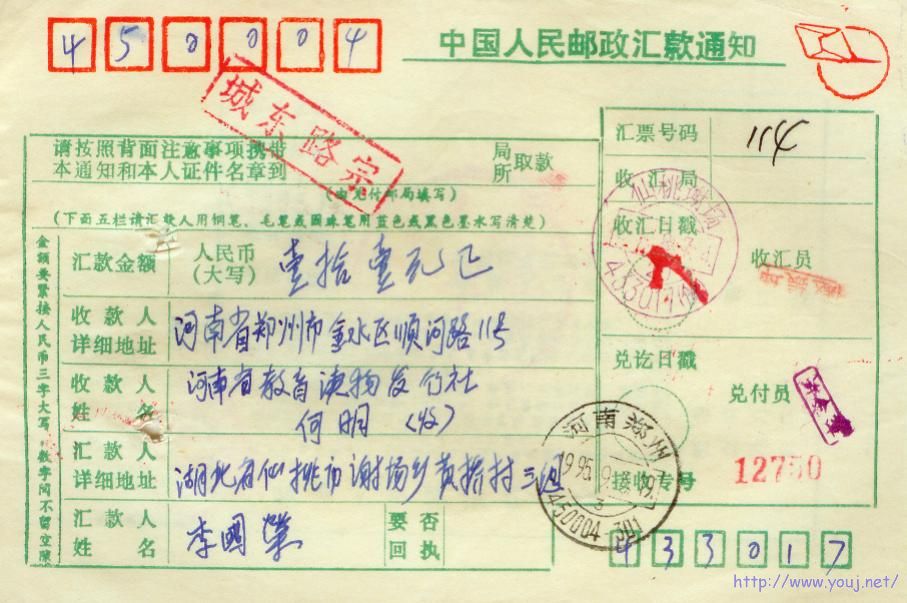 450004
中国人民邮政汇款通知
城东路
请按照背面注意事项携带
本通知和本人证件名章到
局
所
取款
(由兑付邮局填写)
(下面五栏请汇款人用钢笔、毛笔或圆珠笔用蓝色或黑色墨水写清楚)
金额要紧接人民币三字大写,数字间不留空隙
汇款金额
人民币
(大写)
壹拾壹元正
收款人
详细地址
河南省郑州市金水区顺河路11号
收款人
姓名
河南省教育读物发行社
何明 (收)
汇款人
详细地址
湖北省仙桃市谢场乡黄桥村三组
汇款人
姓名
李國荣
要否
回执
汇票号码
1154
收汇局
收汇日戳
收汇员
433017
兑讫日戳
兑付员
河南郑州
1995
3
450004 301
接收专号
12750
433017
http://www.youj.net/